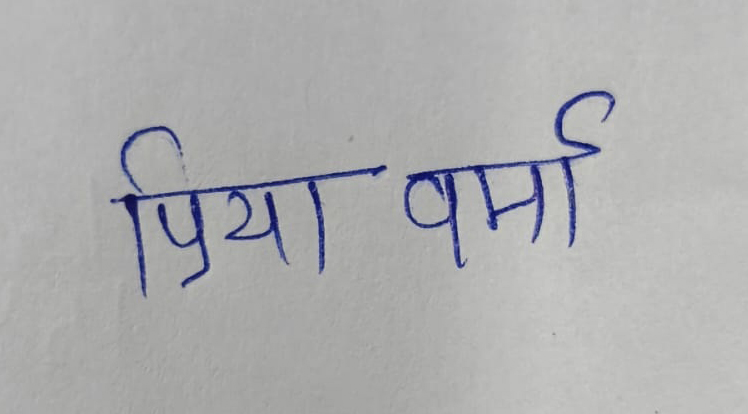 प्रिया वर्मा